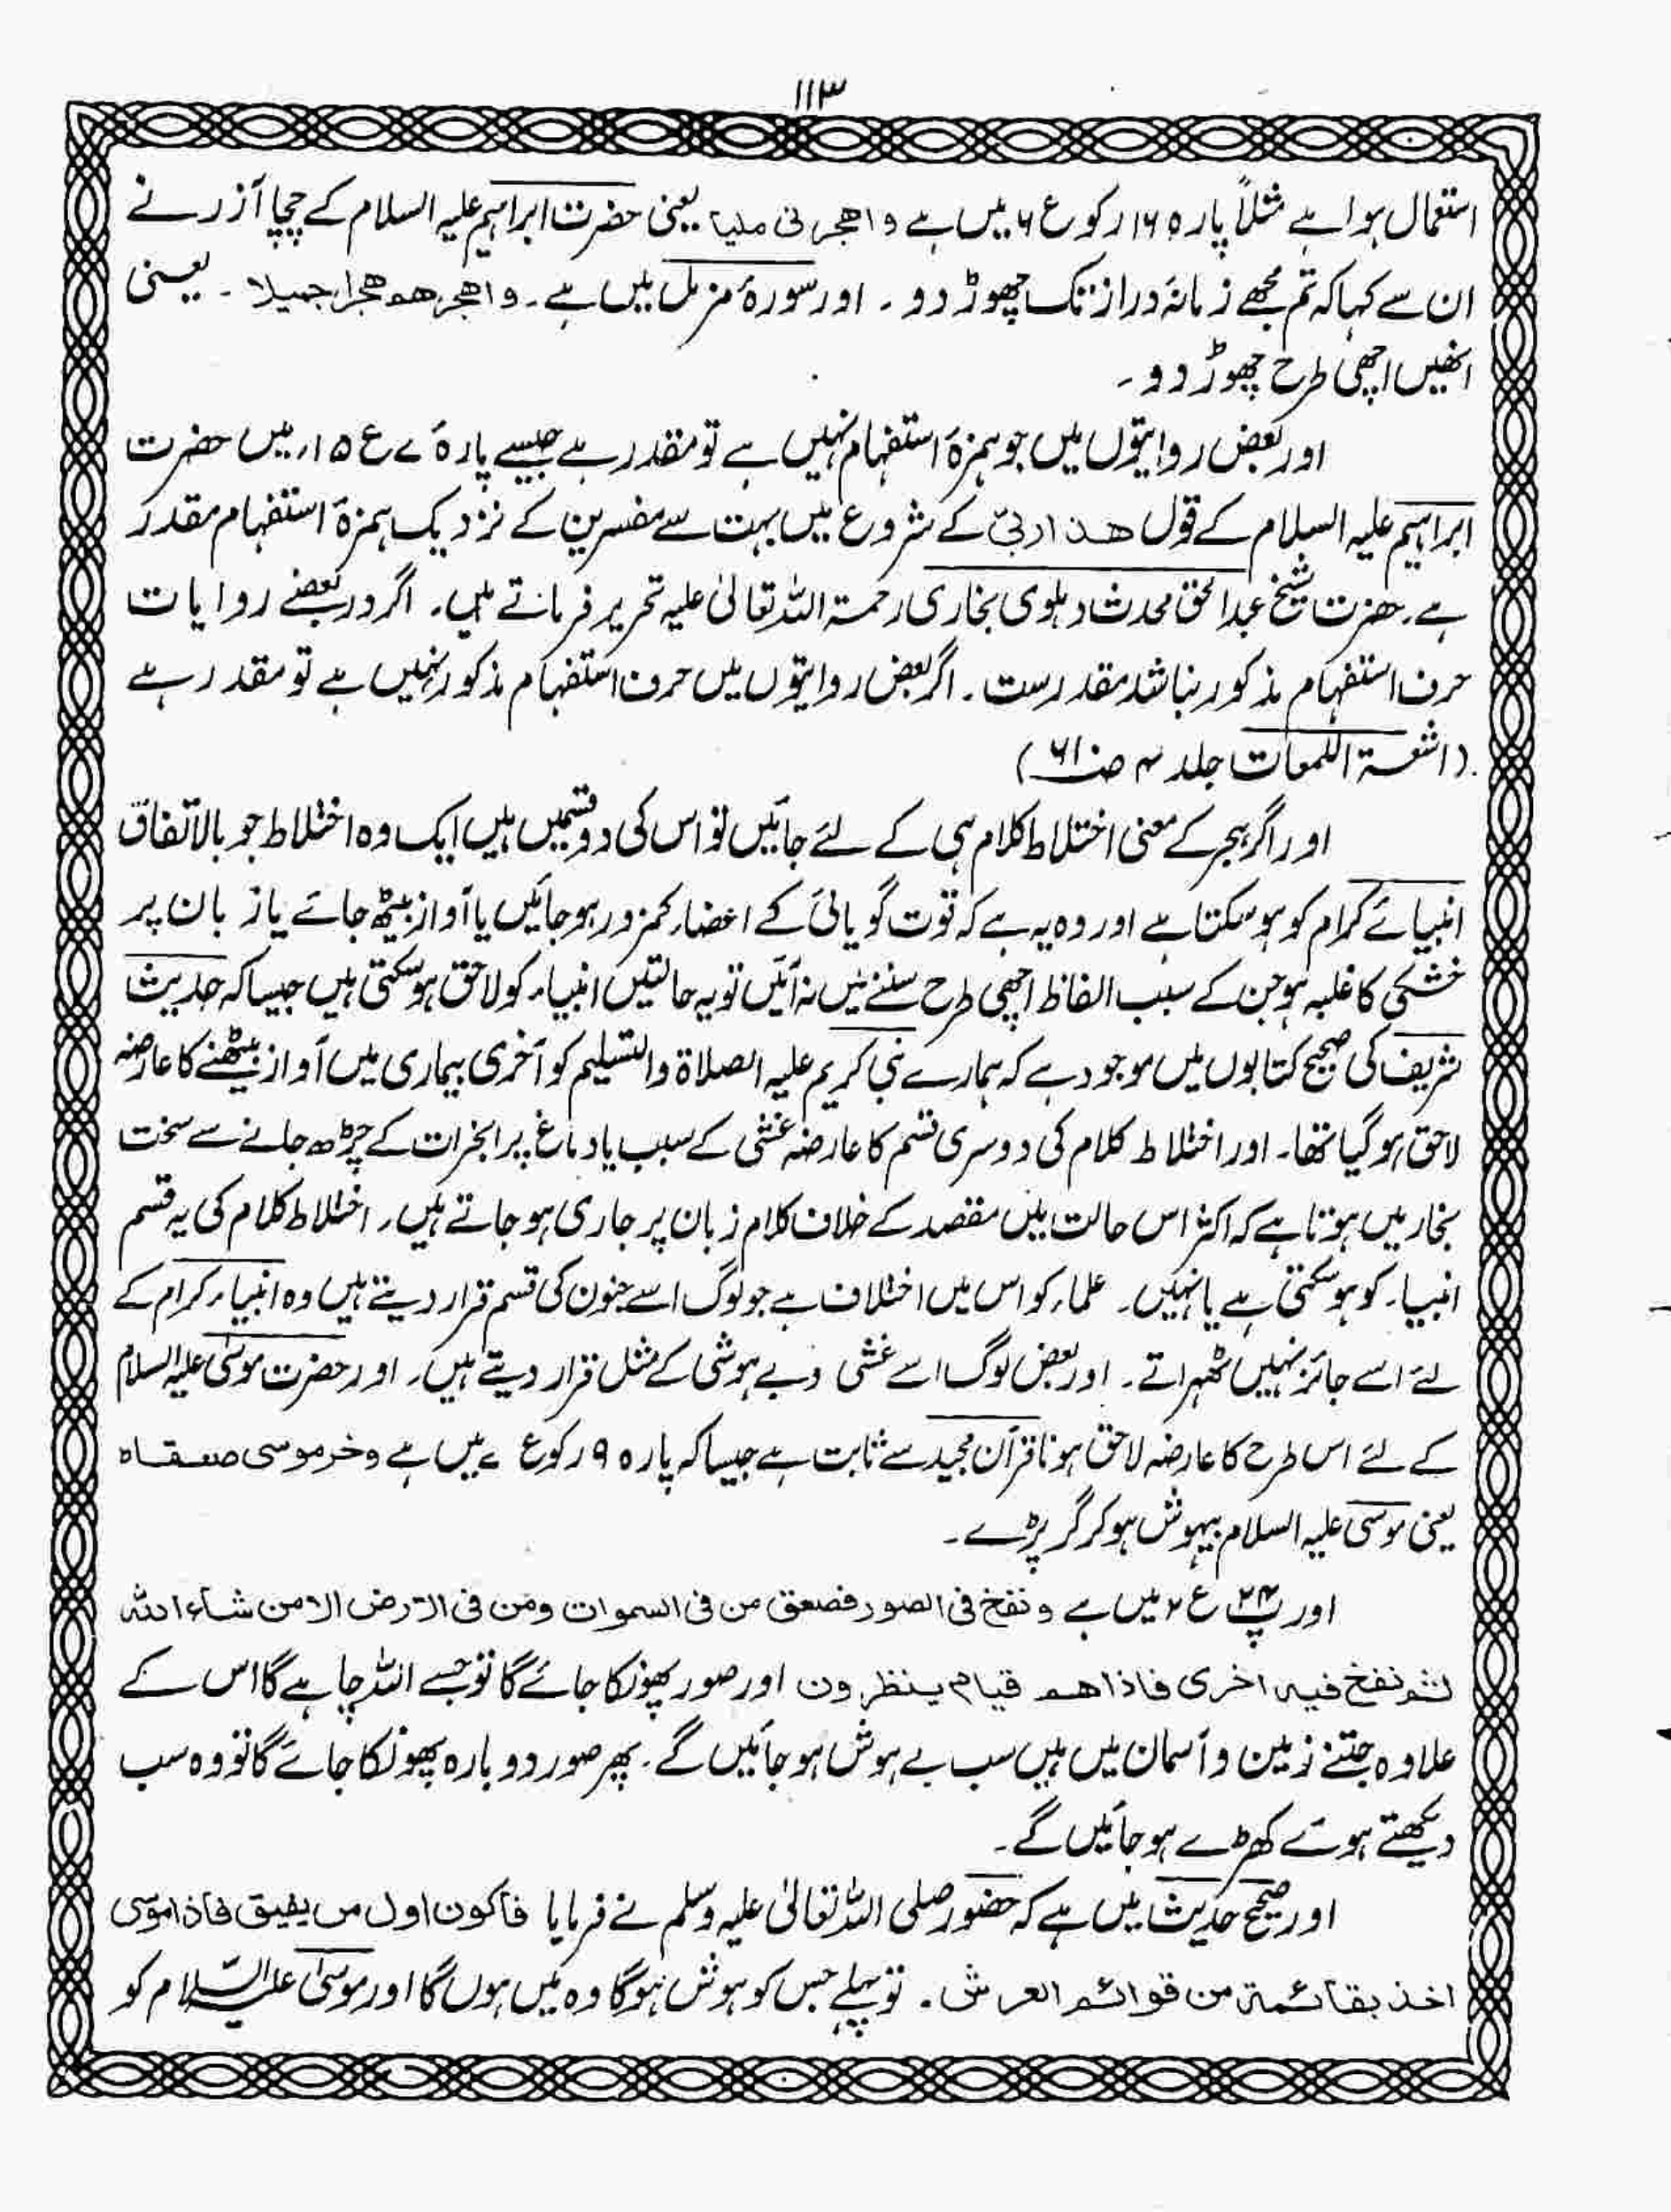 ۱۱۳
استعمال ہوا ہے مثلاً پارہ ۱۶ رکوع ۶ میں ہے واھجرنی ملیا یعنی حضرت ابراہیم علیہ السلام کے چچا آزر نے
ان سے کہا کہ تم مجھے زمانۂ دراز تک چھوڑ دو ۔ اور سورۂ مزمل میں ہے ۔ واھجرھم ھجرا جمیلا ۔ یعنی
انھیں اچھی طرح چھوڑ دو ۔
اور بعض روایتوں میں جو ہمزۂ استفہام نہیں ہے تو مقدر ہے جیسے پارہ ۷ ع ۱۵ میں حضرت
ابراہیم علیہ السلام کے قول ھذا ربّی کے شروع میں بہت سے مفسرین کے نزدیک ہمزۂ استفہام مقدر
ہے۔ حضرت شیخ عبدالحق محدث دہلوی بخاری رحمۃ اللہ تعالیٰ علیہ تحریر فرماتے ہیں۔ اگر در بعضے روایات
حرف استفہام مذکور نباشد مقدر ست ۔ اگر بعض روایتوں میں حرف استفہام مذکور نہیں ہے تو مقدر ہے
(اشعۃ اللمعات جلد ۴ صـ ۶۱۰)
اور اگر ہجر کے معنی اختلاط کلام ہی کے لئے جائیں تو اس کی دو قسمیں ہیں ایک وہ اختلاط جو بالاتفاق
انبیائے کرام کو ہو سکتا ہے اور وہ یہ ہے کہ قوت گویائی کے اعضاء کمزور ہو جائیں یا آواز بیٹھ جائے یا زبان پر
خشکی کا غلبہ ہو جن کے سبب الفاظ اچھی طرح سننے میں نہ آئیں تو یہ حالتیں انبیاء کو لاحق ہو سکتی ہیں جیسا کہ حدیث
شریف کی صحیح کتابوں میں موجود ہے کہ ہمارے نبی کریم علیہ الصلاۃ والتسلیم کو آخری بیماری میں آواز بیٹھنے کا عارضہ
لاحق ہو گیا تھا۔ اور اختلاط کلام کی دوسری قسم کا عارضہ غشی کے سبب یا دماغ پر ابخرات کے چڑھ جانے سے سخت
بخار میں ہوتا ہے کہ اکثر اس حالت میں مقصد کے خلاف کلام زبان پر جاری ہو جاتے ہیں۔ اختلاط کلام کی یہ قسم
انبیاء کو ہو سکتی ہے یا نہیں۔ علماء کو اس میں اختلاف ہے جو لوگ اسے جنون کی قسم قرار دیتے ہیں وہ انبیاء کرام کے
لئے اسے جائز نہیں ٹھہراتے۔ اور بعض لوگ اسے غشی و بے ہوشی کے مثل قرار دیتے ہیں۔ اور حضرت موسیٰ علیہ السلام
کے لئے اس طرح کا عارضہ لاحق ہونا قرآن مجید سے ثابت ہے جیسا کہ پارہ ۹ رکوع ۷ میں ہے وخر موسی صعقاہ
یعنی موسیٰ علیہ السلام بیہوش ہو کر گر پڑے ۔
اور پ ۲۴ ع ۴ میں ہے ونفخ فی الصور فصعق من فی السموات ومن فی الارض الا من شاء اللہ
ثم نفخ فیہ اخری فاذا ھم قیام ینظرون اور صور پھونکا جائے گا تو جسے اللہ چاہے گا اس کے
علاوہ جتنے زمین و آسمان میں ہیں سب بے ہوش ہو جائیں گے۔ پھر صور دوبارہ پھونکا جائے گا تو وہ سب
دیکھتے ہوئے کھڑے ہو جائیں گے ۔
اور صحیح حدیث میں ہے کہ حضور صلی اللہ تعالیٰ علیہ وسلم نے فرمایا فاکون اول من یفیق فاذا موسی
اخذ بقائمۃ من قوائم العرش ۔ تو پہلے جس کو ہوش ہوگا وہ میں ہوں گا اور موسیٰ علیہ السّلام کو